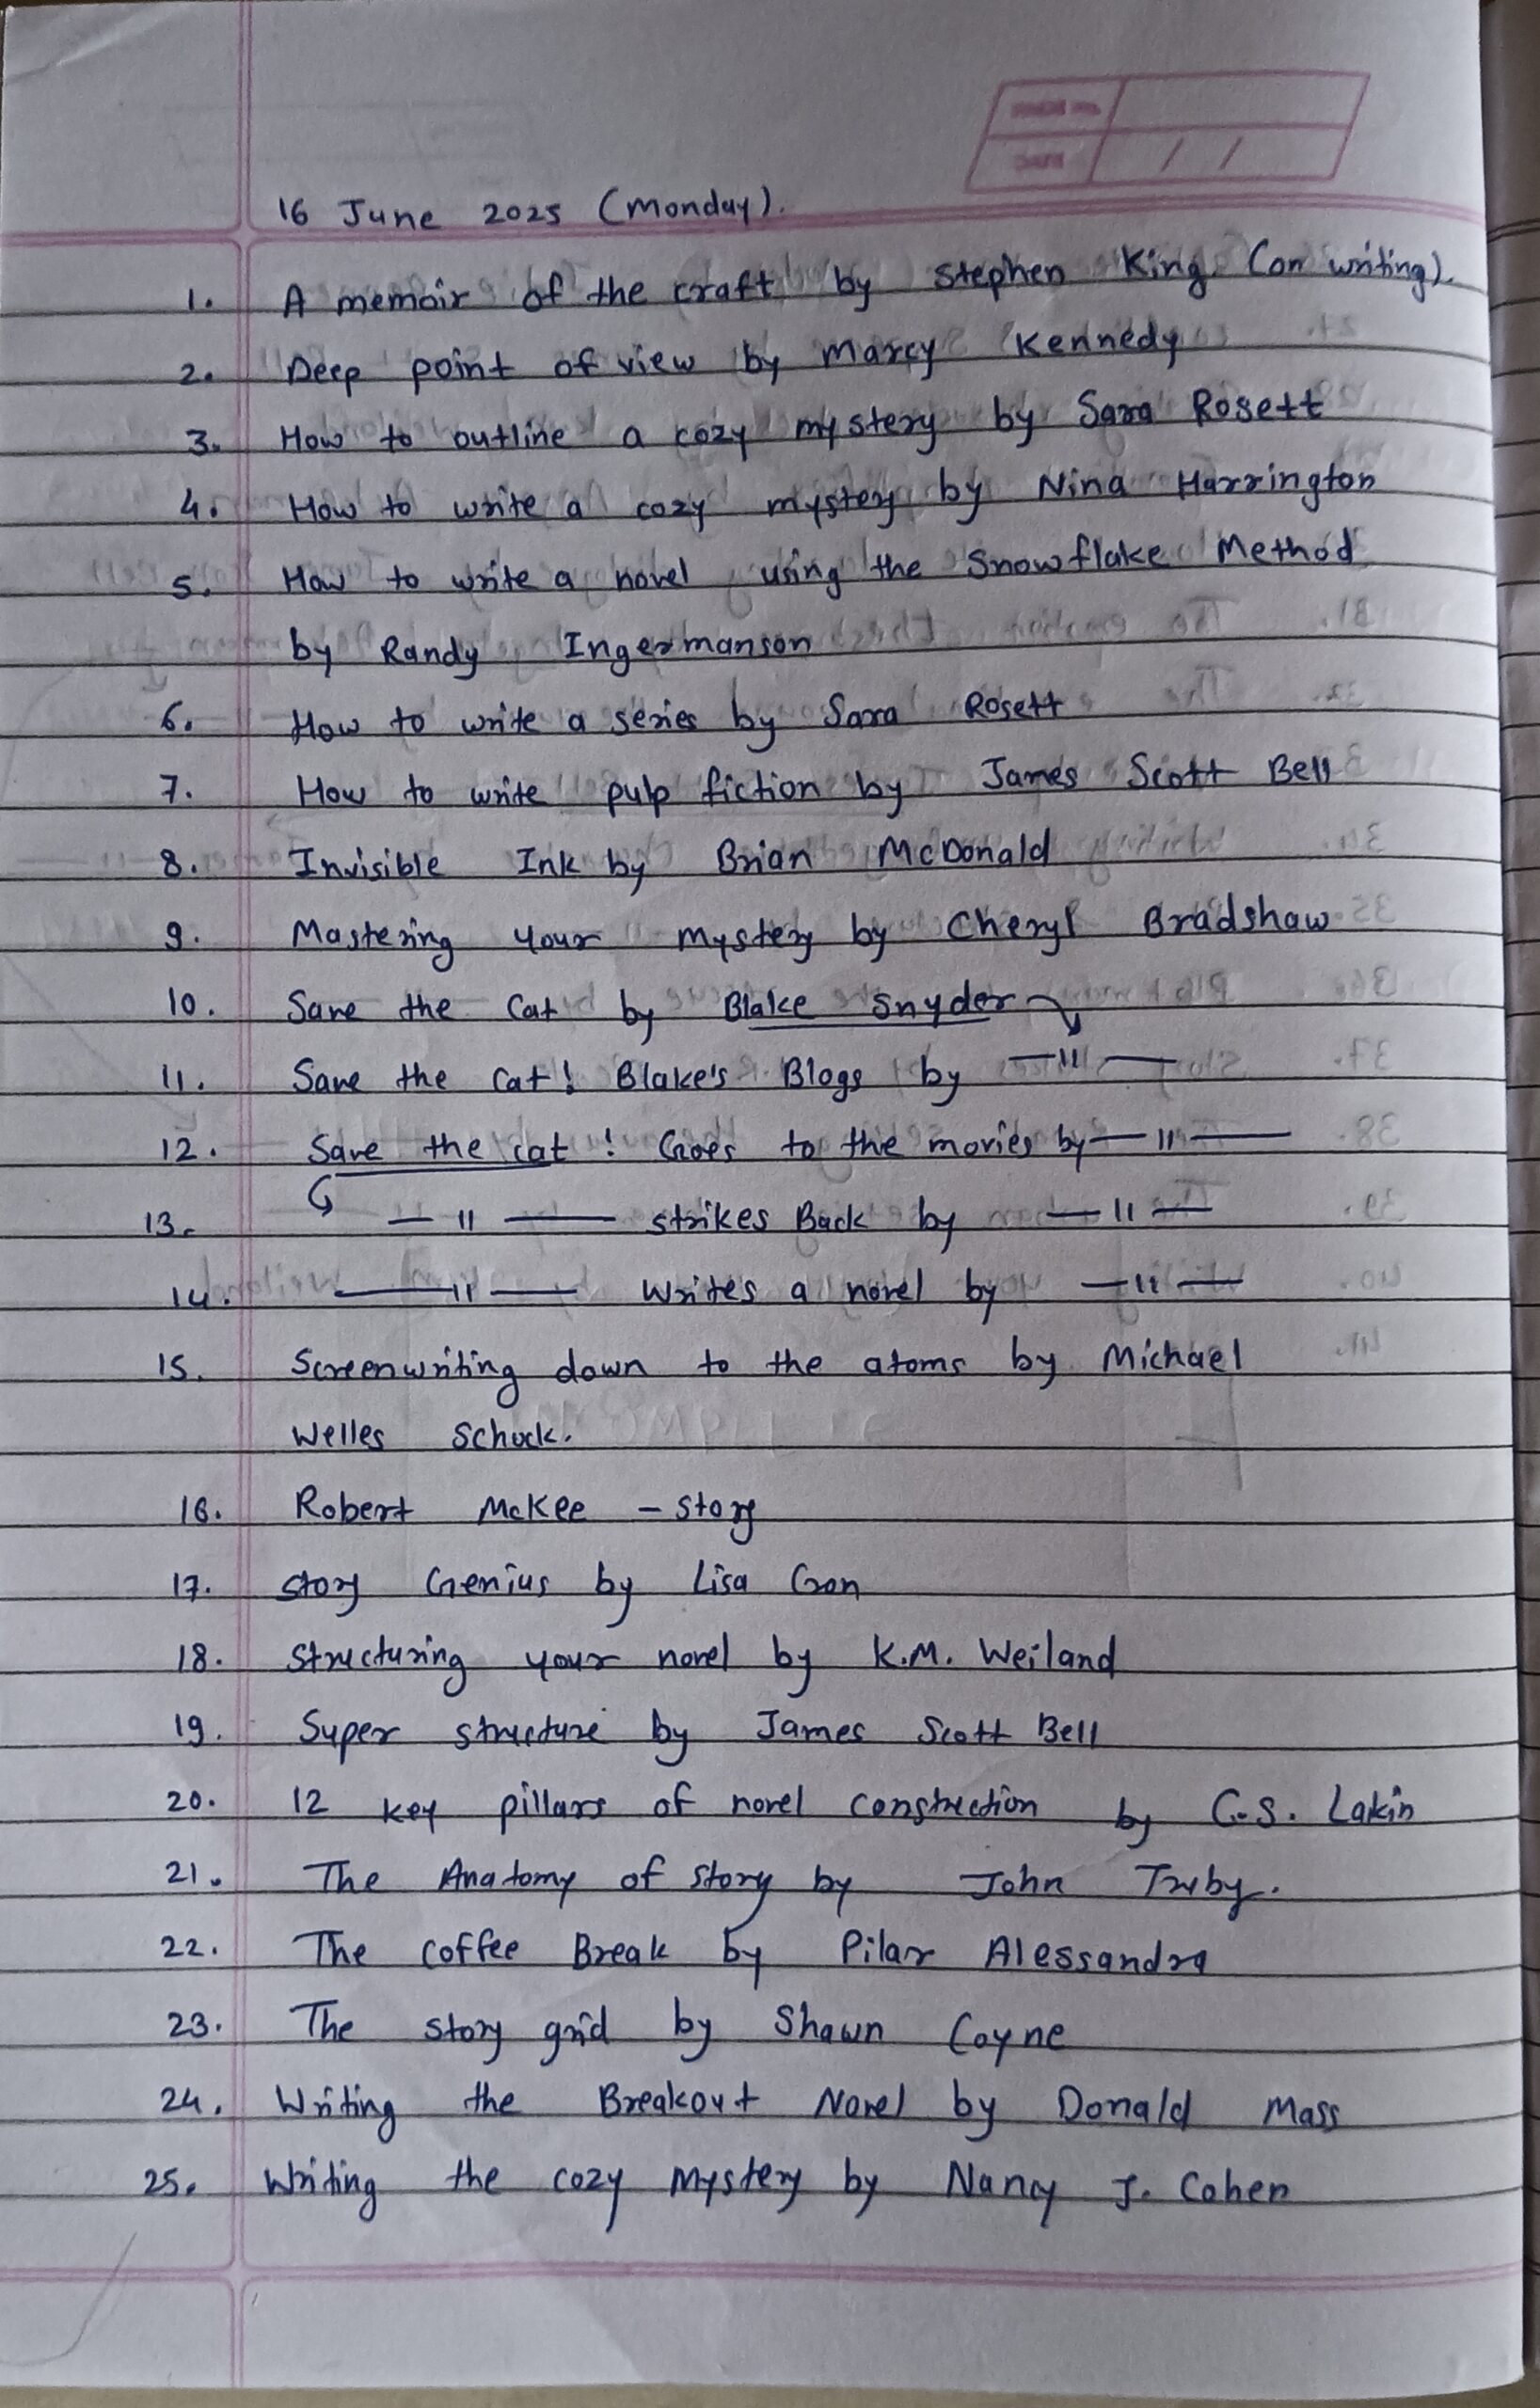 16 June 2025 (Monday).
1. A memoir of the craft by Stephen King. (on writing).
2. Deep point of view by Marcy Kennedy
3. How to outline a cozy mystery by Sara Rosett
4. How to write a cozy mystery by Nina Harrington
5. How to write a novel using the Snowflake Method
by Randy Ingermanson
6. How to write a series by Sara Rosett
7. How to write pulp fiction by James Scott Bell
8. Invisible Ink by Brian McDonald
9. Mastering your mystery by Cheryl Bradshaw
10. Save the Cat by Blake Snyder
11. Save the Cat! Blake's Blogs by —"—
12. Save the cat! Goes to the movies by —"—
13. —"— strikes Back by —"—
14. —"— Writes a novel by —"—
15. Screenwriting down to the atoms by Michael
Welles Schock.
16. Robert McKee - Story
17. Story Genius by Lisa Cron
18. Structuring your novel by K.M. Weiland
19. Super structure by James Scott Bell
20. 12 key pillars of novel construction by C.S. Lakin
21. The Anatomy of Story by John Truby.
22. The Coffee Break by Pilar Alessandra
23. The story grid by Shawn Coyne
24. Writing the Breakout Novel by Donald Mass
25. Writing the cozy Mystery by Nancy J. Cohen